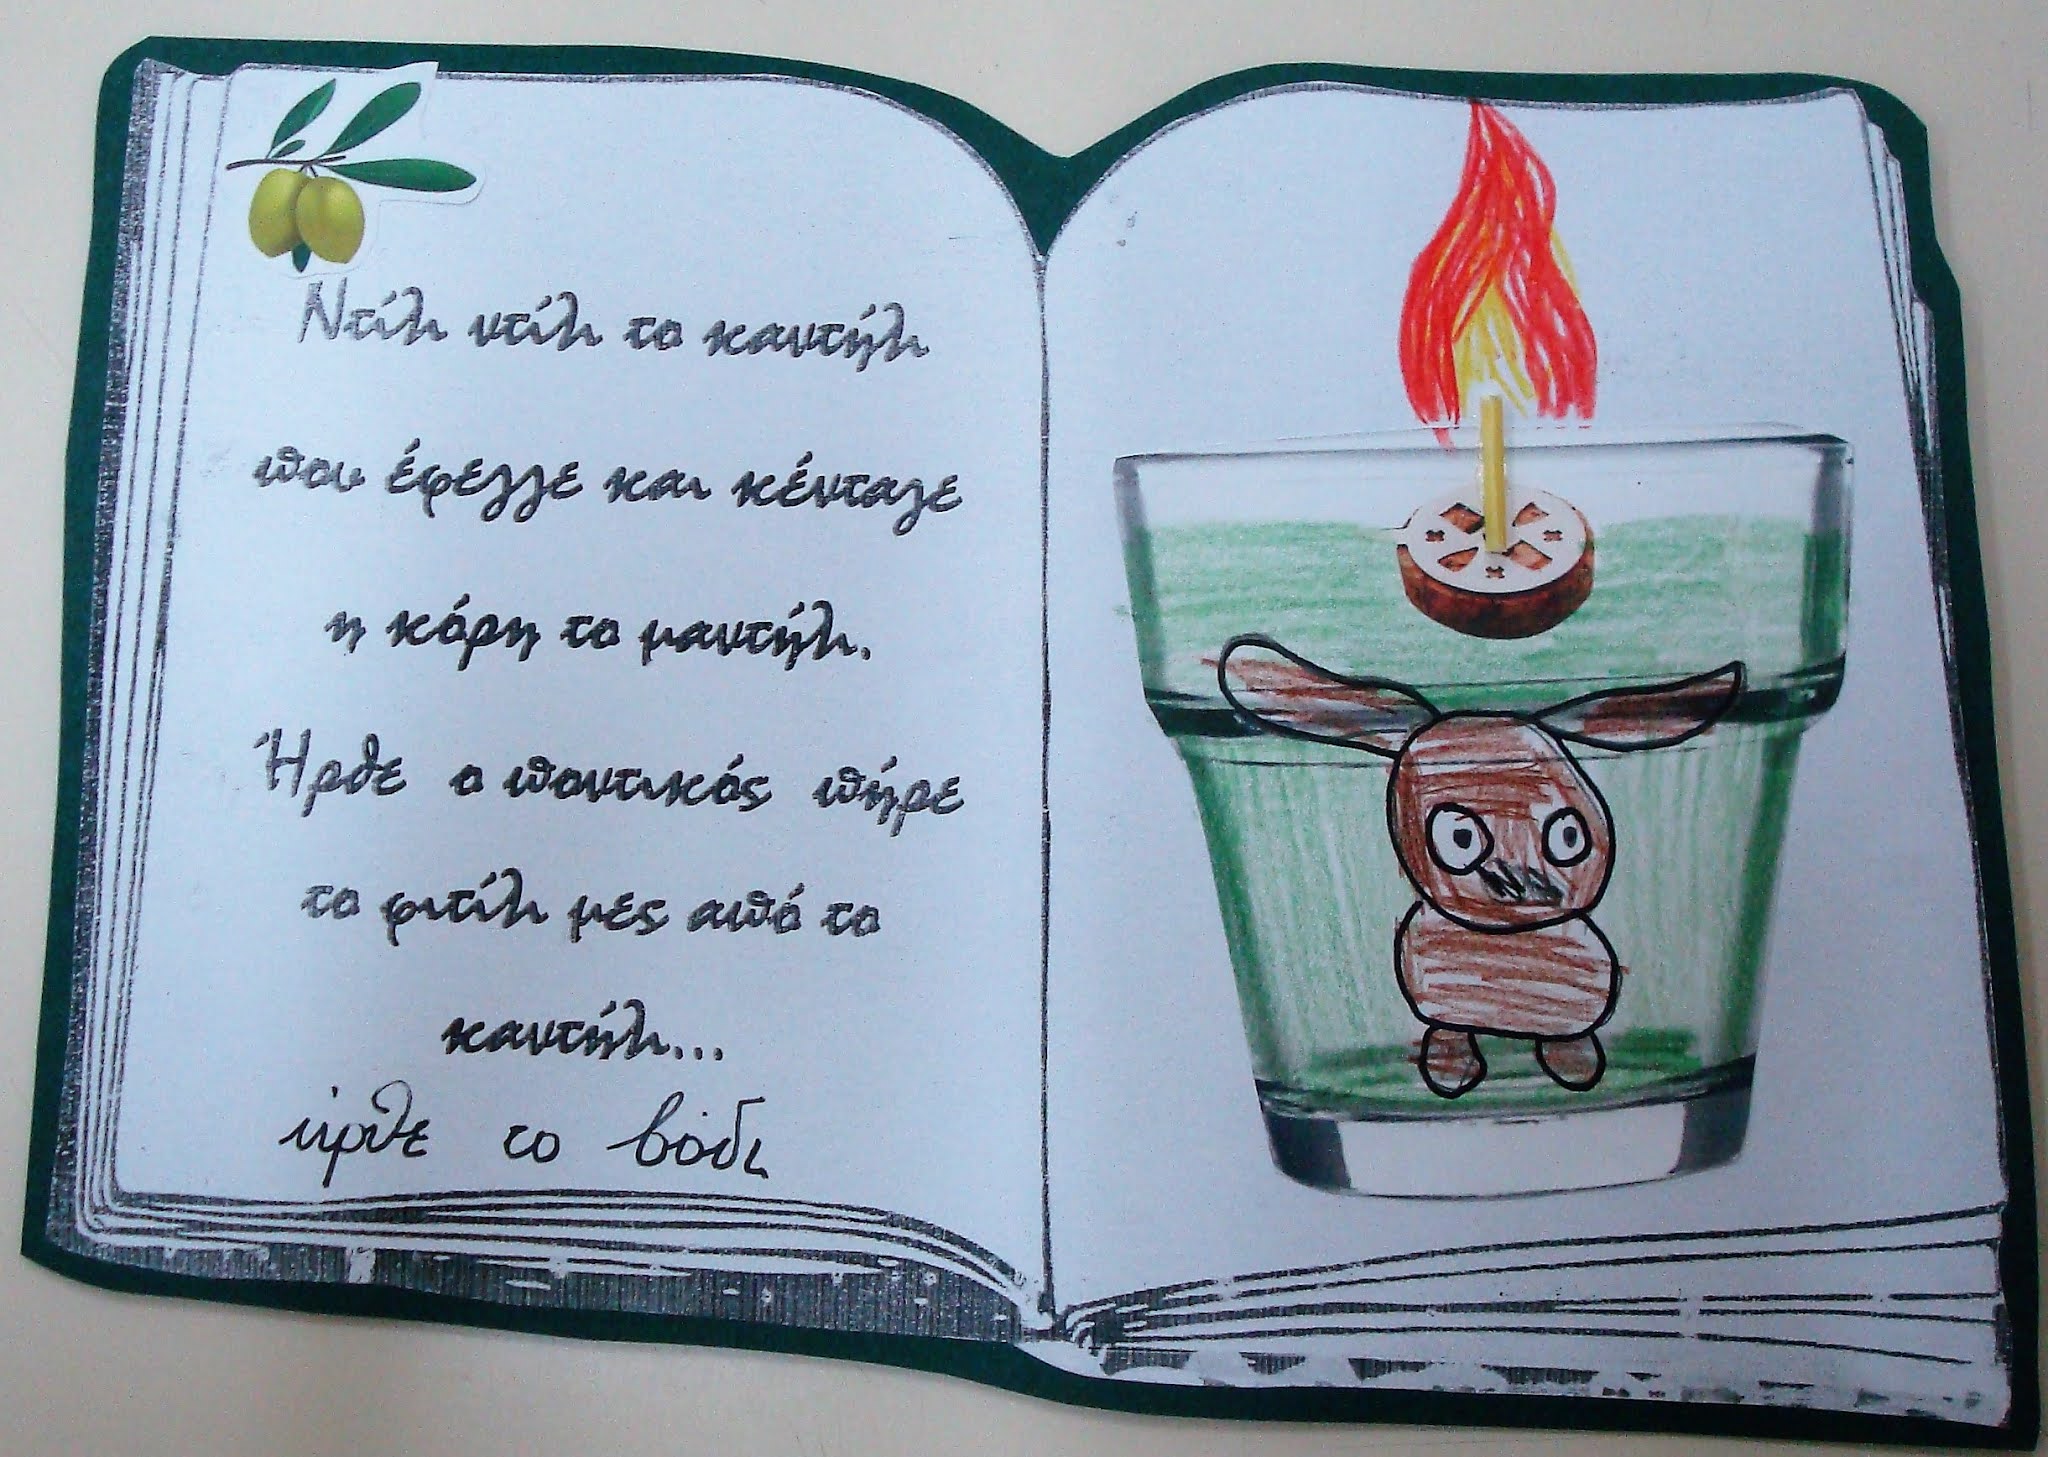 Ντίλι ντίλι το καντήλι
που έφεγγε και κένταγε
η κόρη το μαντήλι.
Ήρθε ο ποντικός πήρε
το φιτίλι μες από το
καντήλι...
ήρθε το βόδι